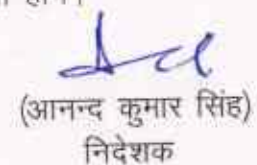 (आनन्द कुमार सिंह)
निदेशक